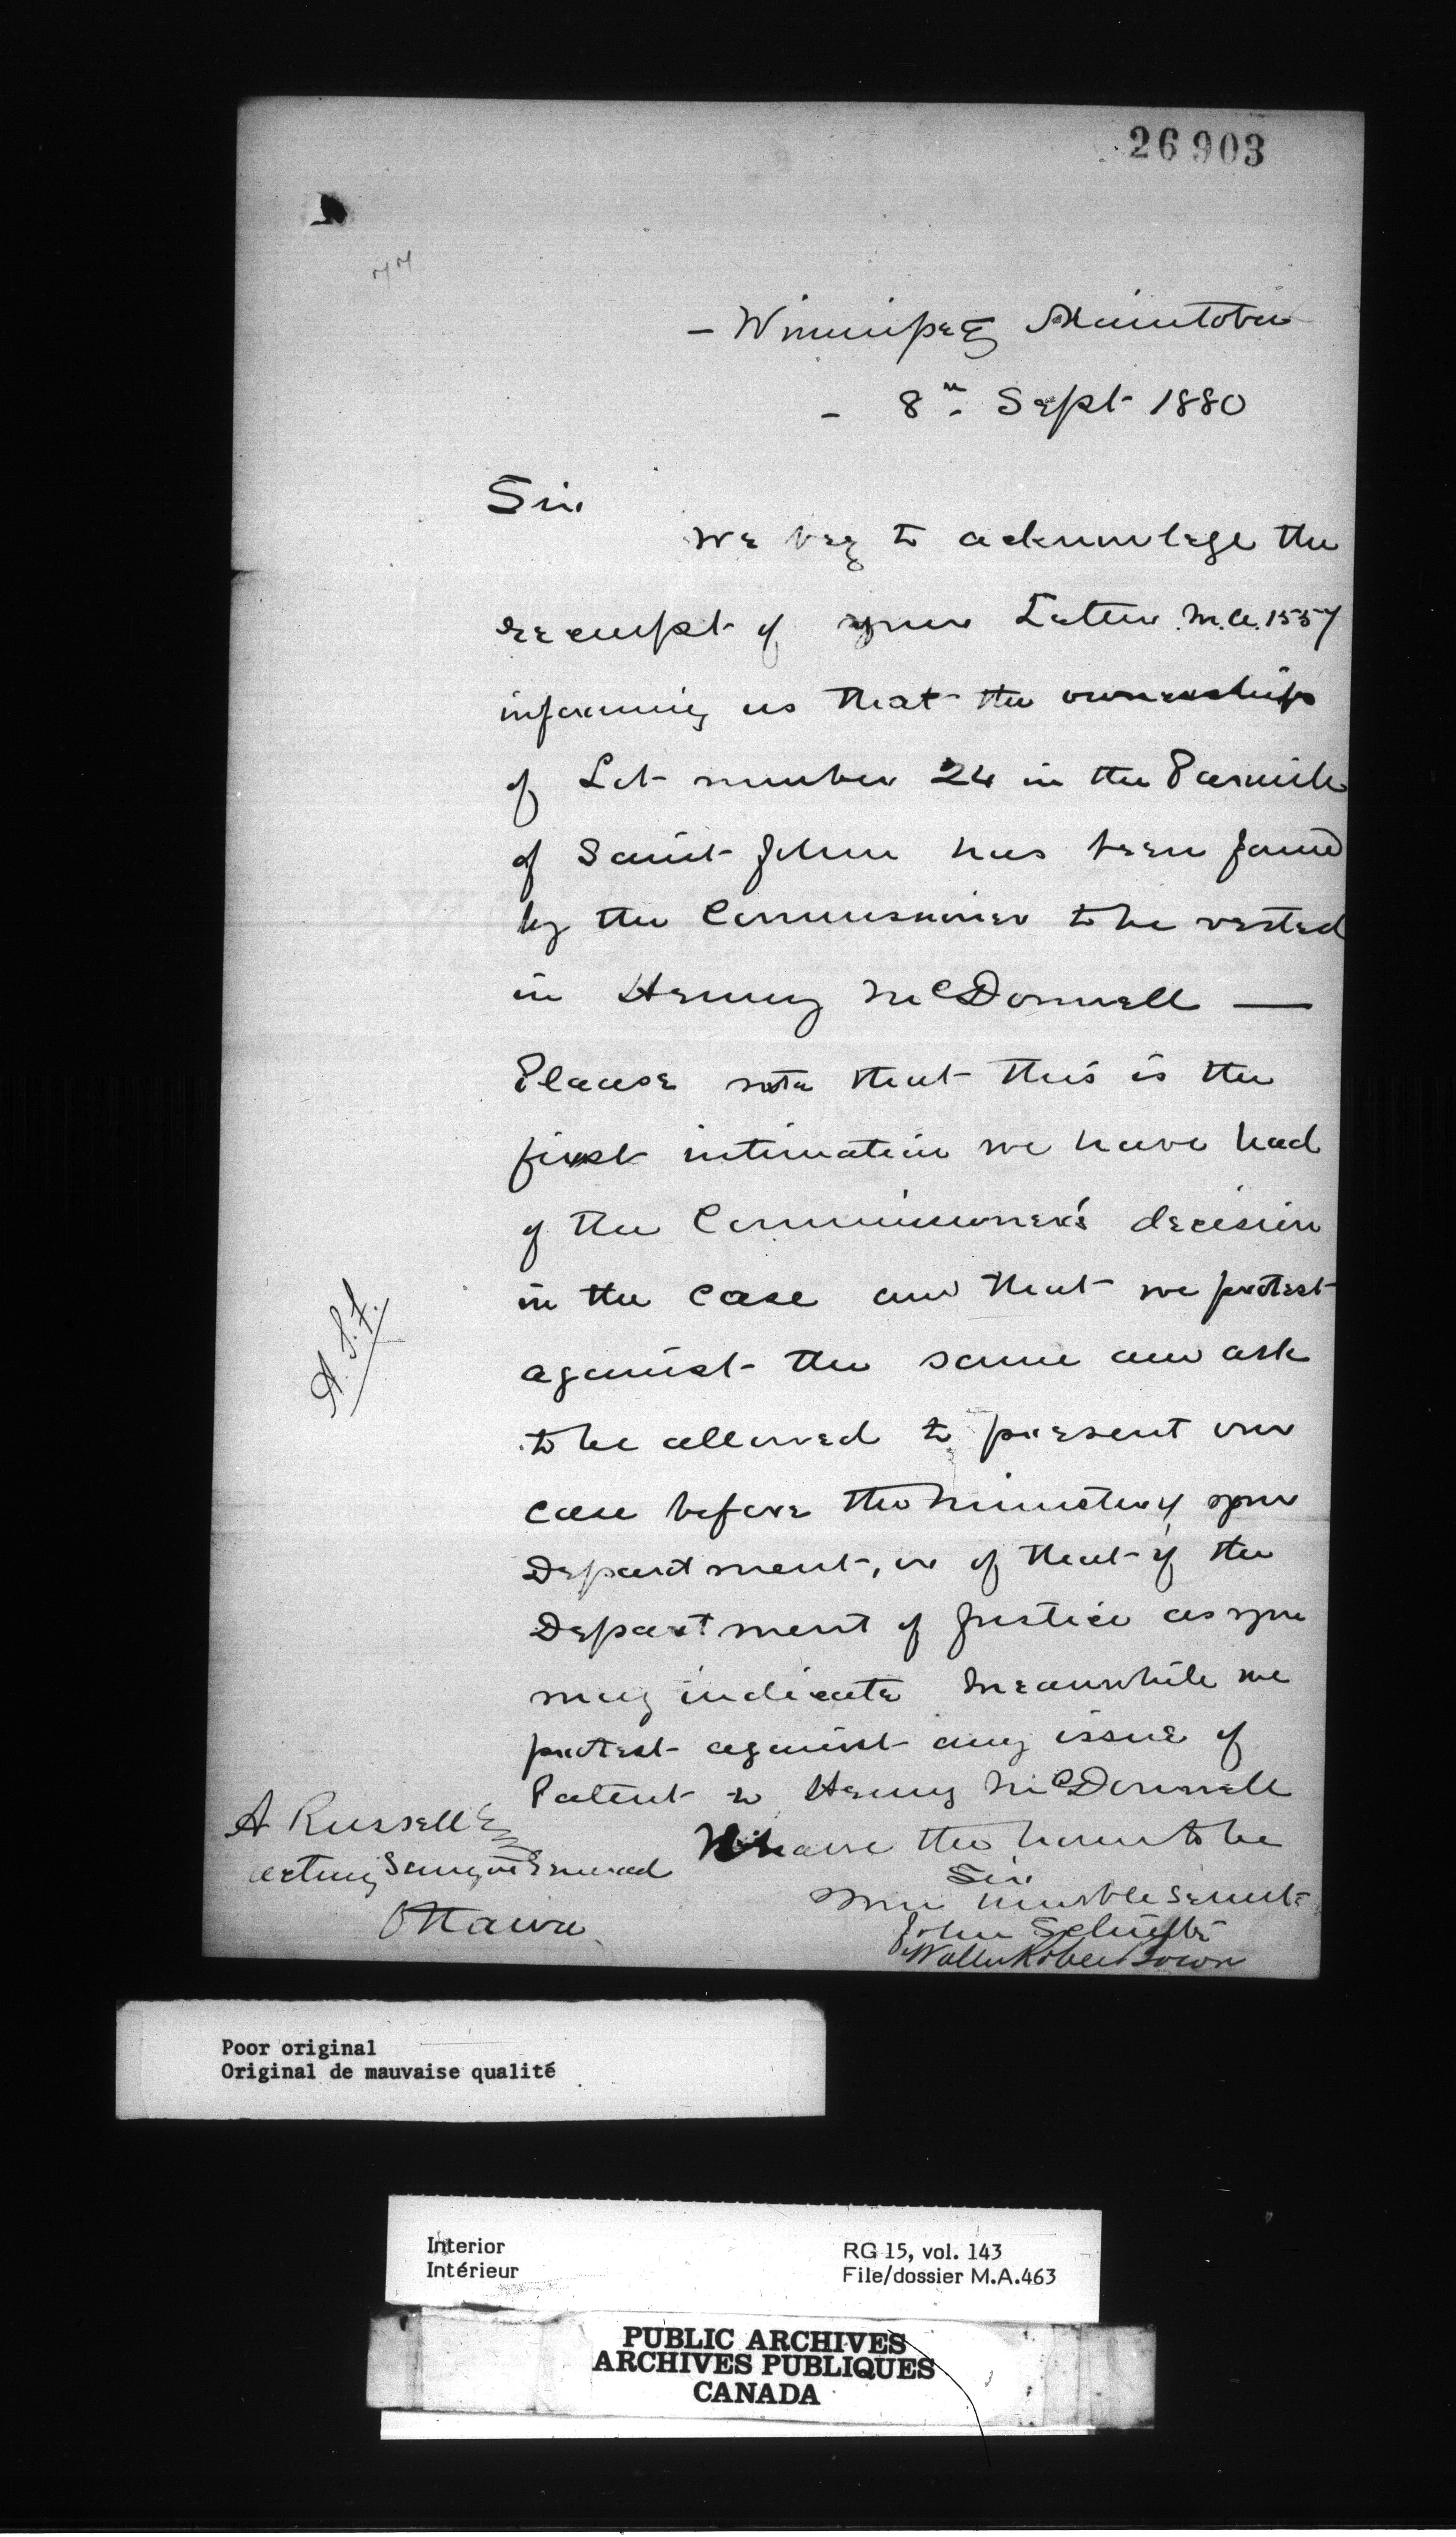 26903
77
- Winnipeg Manitoba
- 8th. Sept 1880
Sir.
We beg to acknowlege the
receipt of your Letter M.A. 1557
informing us that the ownership
of Lot number 24 in the Parish
of Saint John has been found
by the Commissioner to be vested
in Henry McDonnell —
Please note that this is the
first intimation we have had
of the Commissioner's decision
in the case and that we protest
against the same and ask
to be allowed to present our
case before the Minister of your
Department, or of that of the
Department of Justice as you
may indicate Meanwhile we
protest against any issue of
Patent to Henry McDonnell
We have the honor to be
Sir.
Your humble Servts
John Schultz
Walter Robert Bown
A Russell Esq
Acting Surveyor General
Ottawa.
Poor original
Original de mauvaise qualité
Interior
Intérieur
RG 15, vol. 143
File/dossier M.A.463
PUBLIC ARCHIVES
ARCHIVES PUBLIQUES
CANADA